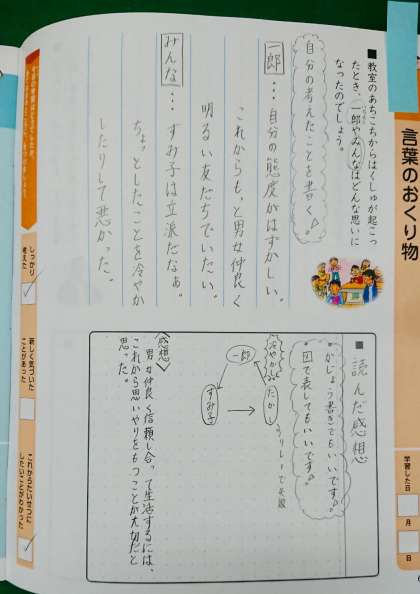 言葉のおくり物
■教室のあちこちからはくしゅが起こっ
たとき、一郎やみんなはどんな思いに
なったのでしょう。
自分の考えたことを書く。
一郎…自分の態度がはずかしい。
これからもっと男女仲良く
明るい友だちでいたい。
みんな…すみ子は立派だなぁ。
ちょっとしたことを冷やか
したりして悪かった。
■読んだ感想
・かじょう書きでもいいです。
・図で表してもいいです。
一郎
冷やかし
たかし
すみ子
リレーで失敗
〈感想〉
男女仲良く信頼し合って生活するには、
これから思いやりをもつことが大切だと
思った。
学習した日
月
日
しっかり
考えた
新しく気づいた
ことがあった
これからたいせつに
したいことがわかった